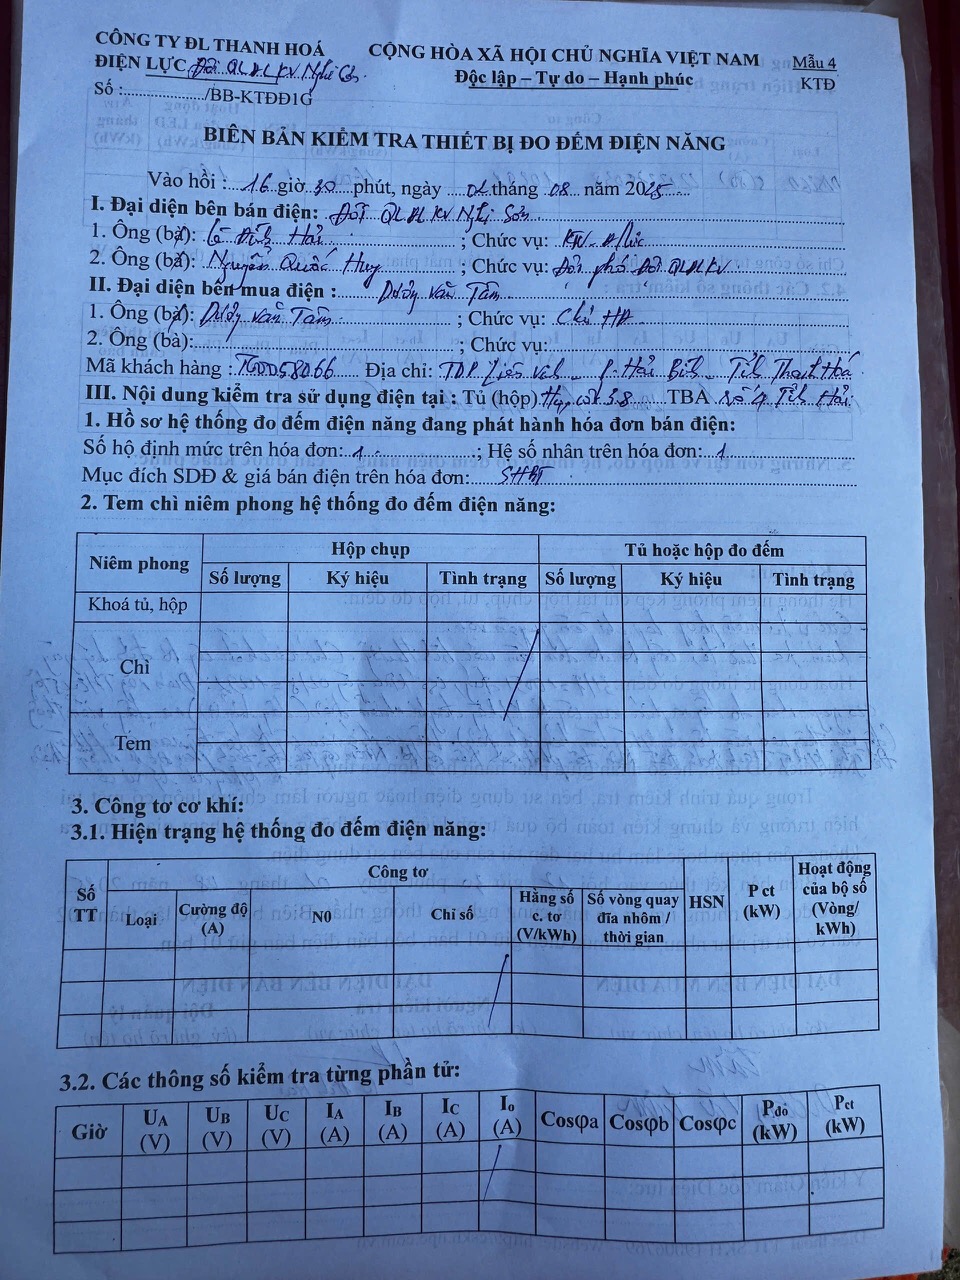 CÔNG TY ĐL THANH HOÁ
ĐIỆN LỰC Đội QLĐL KV Nghi Sơn
Số :............/BB-KTĐĐ1G
CỘNG HÒA XÃ HỘI CHỦ NGHĨA VIỆT NAM
Độc lập – Tự do – Hạnh phúc
Mẫu 4
KTĐ
BIÊN BẢN KIỂM TRA THIẾT BỊ ĐO ĐẾM ĐIỆN NĂNG
Vào hồi : 16 giờ 30 phút, ngày 01 tháng 08 năm 2025
I. Đại diện bên bán điện: Đội QLĐL KV Nghi Sơn
1. Ông (bà): Lê Đình Hải ; Chức vụ:
2. Ông (bà): Nguyễn Quốc Huy ; Chức vụ: Đội phó Đội QLĐLKV
II. Đại diện bên mua điện : Dương Văn Tâm
1. Ông (bà): Dương Văn Tâm ; Chức vụ: Chủ HĐ
2. Ông (bà): ; Chức vụ:
Mã khách hàng : Địa chỉ: TDP Liên Vinh - P. Hải Bình - Tỉnh Thanh Hoá
III. Nội dung kiểm tra sử dụng điện tại : Tủ (hộp) Hộp cột 3.8 TBA số 4 Tĩnh Hải
1. Hồ sơ hệ thống đo đếm điện năng đang phát hành hóa đơn bán điện:
Số hộ định mức trên hóa đơn: 1 ; Hệ số nhân trên hóa đơn: 1
Mục đích SDĐ & giá bán điện trên hóa đơn: SHBT
2. Tem chì niêm phong hệ thống đo đếm điện năng:
Niêm phong Hộp chụp Tủ hoặc hộp đo đếm
Số lượng Ký hiệu Tình trạng Số lượng Ký hiệu Tình trạng
Khoá tủ, hộp
Chì
Tem
3. Công tơ cơ khí:
3.1. Hiện trạng hệ thống đo đếm điện năng:
Số TT Công tơ HSN P ct (kW) Hoạt động của bộ số (Vòng/ kWh)
Loại Cường độ (A) N0 Chỉ số Hằng số c. tơ (V/kWh) Số vòng quay đĩa nhôm / thời gian
3.2. Các thông số kiểm tra từng phần tử:
Giờ UA (V) UB (V) UC (V) IA (A) IB (A) IC (A) Io (A) Cosφa Cosφb Cosφc Pđo (kW) Pct (kW)